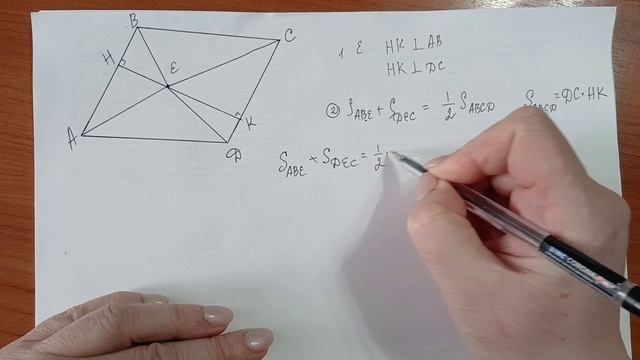 B
C
H
E
K
A
D
1. E HK ⊥ AB
HK ⊥ DC
② S_ABE + S_DEC = 1/2 S_ABCD S_ABCD = DC · HK
S_ABE + S_DEC = 1/2